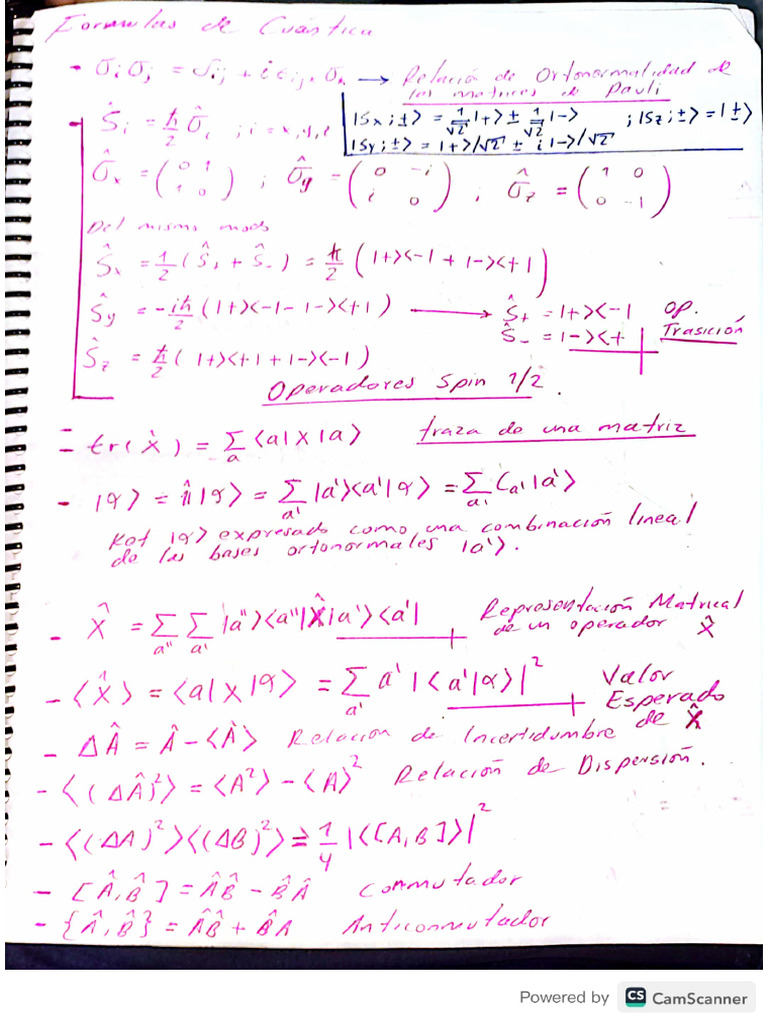 Formulas de Cuántica
- σiσj = δij + i εijk σk → Relación de Ortonormalidad de
las matrices de Pauli
|Sx;±> = 1/√2 |+> ± 1/√2 |-> ; |Sz;±> = |±>
|Sy;±> = |+>/√2 ± i |->/√2
- Ŝi = ħ/2 σ̂i ; i = x,y,z
σ̂x = (0 1 / 1 0) ; σ̂y = (0 -i / i 0) ; σ̂z = (1 0 / 0 -1)
Del mismo modo
Ŝx = 1/2 (Ŝ+ + Ŝ-) = ħ/2 (|+><-| + |-><+|)
Ŝy = -iħ/2 (|+><-| - |-><+|) → Ŝ+ = |+><-| OP.
Ŝ- = |-><+ Trasición
Ŝz = ħ/2 (|+><+| + |-><-|)
Operadores Spin 1/2.
- tr(X̂) = Σa <a|X|a> traza de una matriz
- |α> = 1̂|α> = Σa' |a'><a'|α> = Σa' Ca'|a'>
Ket |α> expresado como una combinación lineal
de las bases ortonormales |a'>.
- X̂ = Σa'' Σa' |a''><a''|X̂|a'><a'| Representación Matrical
de un operador X̂
- <X̂> = <α|X|α> = Σa' a' |<a'|α>|² Valor
Esperado
de X̂
- ΔÂ = Â - <Â> Relación de Incertidumbre
- <(ΔÂ)²> = <A²> - <A>² Relación de Dispersión.
- <(ΔA)²><(ΔB)²> ≥ 1/4 |<[A,B]>|²
- [Â,B̂] = ÂB̂ - B̂Â Conmutador
- {Â,B̂} = ÂB̂ + B̂A Anticonmutador
Powered by CS CamScanner